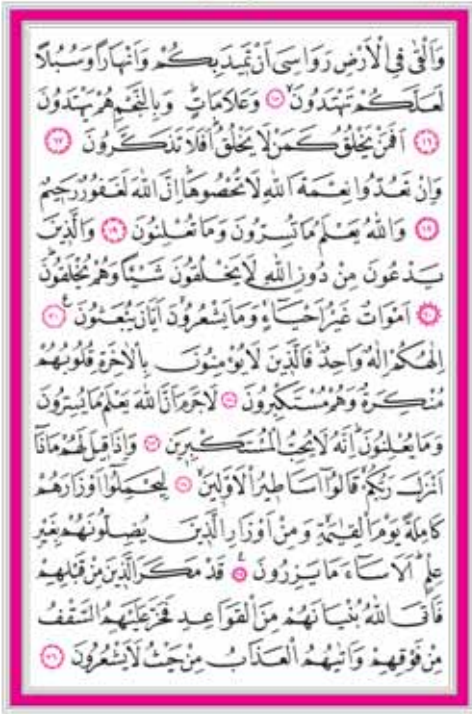 وَاَلْقٰى فِى الْاَرْضِ رَوَاسِىَ اَنْ تَمِيدَ بِكُمْ وَاَنْهَارًا وَسُبُلًا
لَعَلَّكُمْ تَهْتَدُونَۙ ﴿١٥﴾ وَعَلَامَاتٍۜ وَبِالنَّجْمِ هُمْ يَهْتَدُونَ
﴿١٦﴾ اَفَمَنْ يَخْلُقُ كَمَنْ لَا يَخْلُقُۜ اَفَلَا تَذَكَّرُونَ ﴿١٧﴾
وَاِنْ تَعُدُّوا نِعْمَةَ اللّٰهِ لَا تُحْصُوهَاۜ اِنَّ اللّٰهَ لَغَفُورٌ رَحِيمٌ
﴿١٨﴾ وَاللّٰهُ يَعْلَمُ مَا تُسِرُّونَ وَمَا تُعْلِنُونَ ﴿١٩﴾ وَالَّذِينَ
يَدْعُونَ مِنْ دُونِ اللّٰهِ لَا يَخْلُقُونَ شَيْـًٔا وَهُمْ يُخْلَقُونَۜ
﴿٢٠﴾ اَمْوَاتٌ غَيْرُ اَحْيَاءٍۚ وَمَا يَشْعُرُونَ اَيَّانَ يُبْعَثُونَ۟ ﴿٢١﴾
اِلٰهُكُمْ اِلٰهٌ وَاحِدٌۚ فَالَّذِينَ لَا يُؤْمِنُونَ بِالْاٰخِرَةِ قُلُوبُهُمْ
مُنْكِرَةٌ وَهُمْ مُسْتَكْبِرُونَ ﴿٢٢﴾ لَا جَرَمَ اَنَّ اللّٰهَ يَعْلَمُ مَا يُسِرُّونَ
وَمَا يُعْلِنُونَۜ اِنَّهُ لَا يُحِبُّ الْمُسْتَكْبِرِينَ ﴿٢٣﴾ وَاِذَا قِيلَ لَهُمْ مَاذَٓا
اَنْزَلَ رَبُّكُمْۙ قَالُٓوا اَسَاطِيرُ الْاَوَّلِينَۙ ﴿٢٤﴾ لِيَحْمِلُٓوا اَوْزَارَهُمْ
كَامِلَةً يَوْمَ الْقِيٰمَةِۙ وَمِنْ اَوْزَارِ الَّذِينَ يُضِلُّونَهُمْ بِغَيْرِ
عِلْمٍۜ اَلَا سَٓاءَ مَا يَزِرُونَ۟ ﴿٢٥﴾ قَدْ مَكَرَ الَّذِينَ مِنْ قَبْلِهِمْ
فَاَتَى اللّٰهُ بُنْيَانَهُمْ مِنَ الْقَوَاعِدِ فَخَرَّ عَلَيْهِمُ السَّقْفُ
مِنْ فَوْقِهِمْ وَاَتٰيهُمُ الْعَذَابُ مِنْ حَيْثُ لَا يَشْعُرُونَ ﴿٢٦﴾